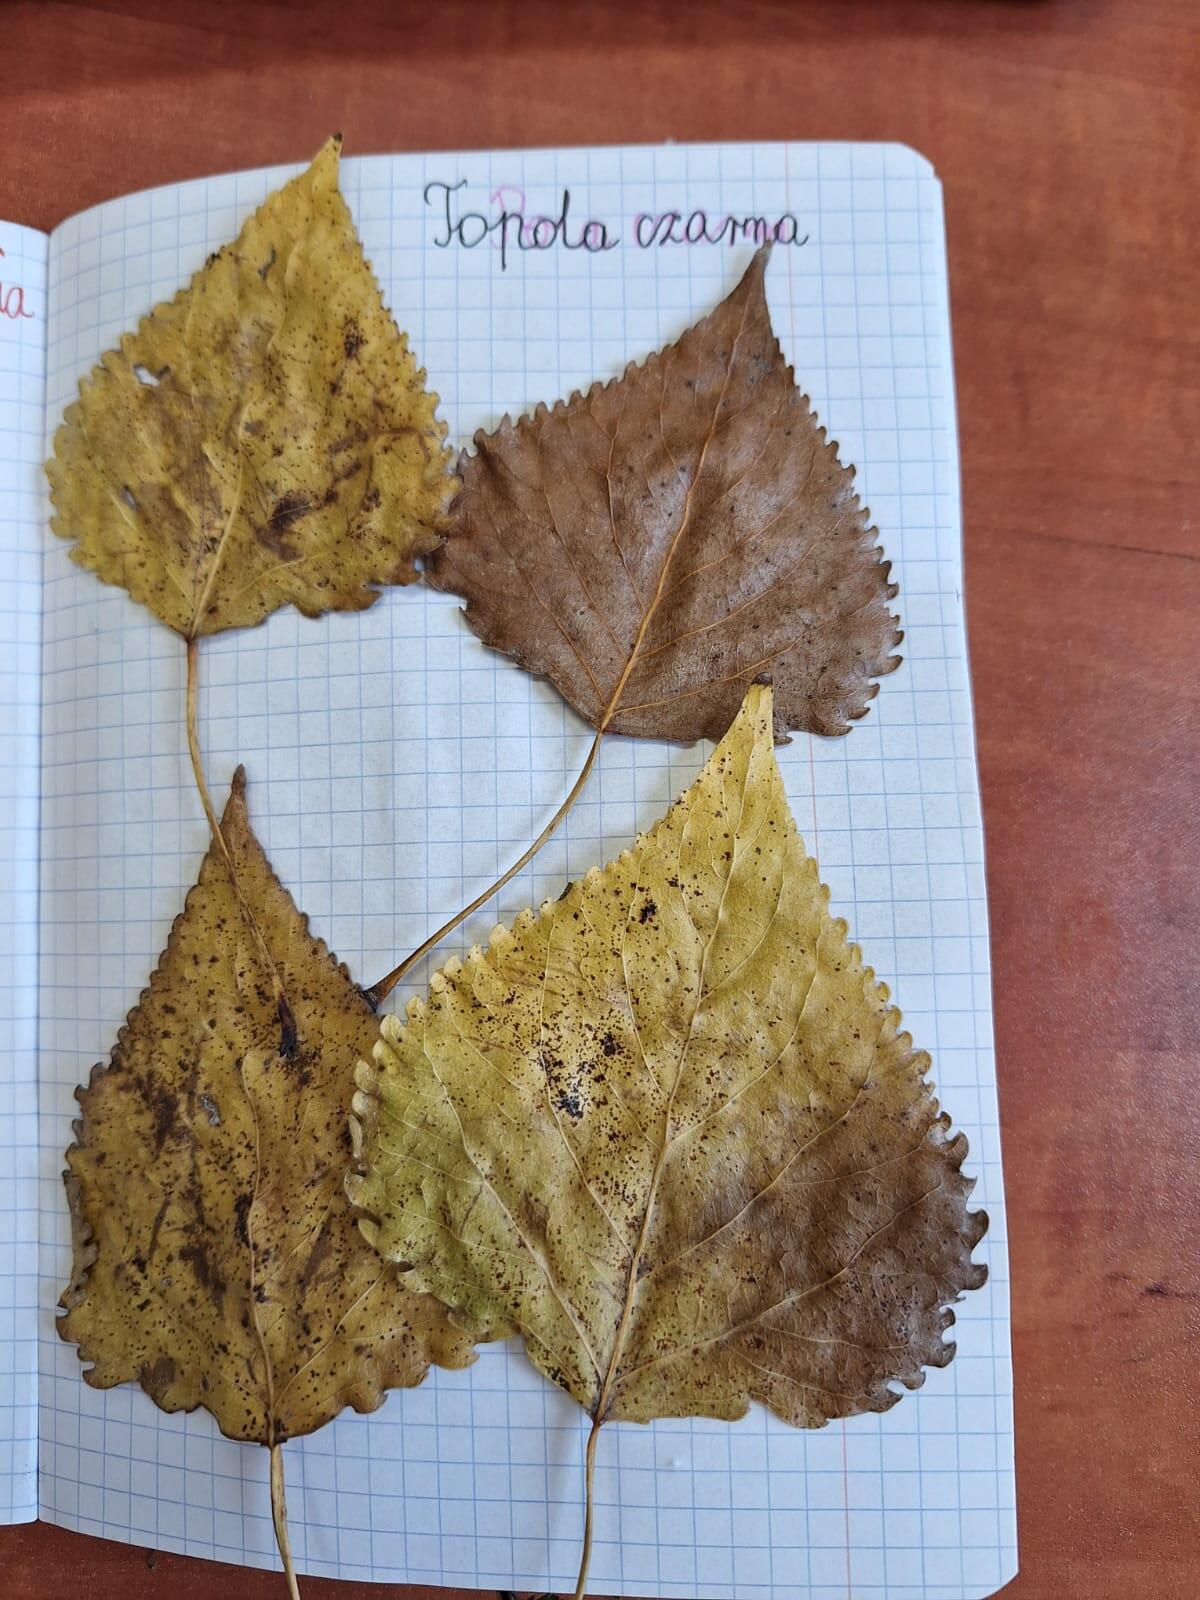 Topola czarna